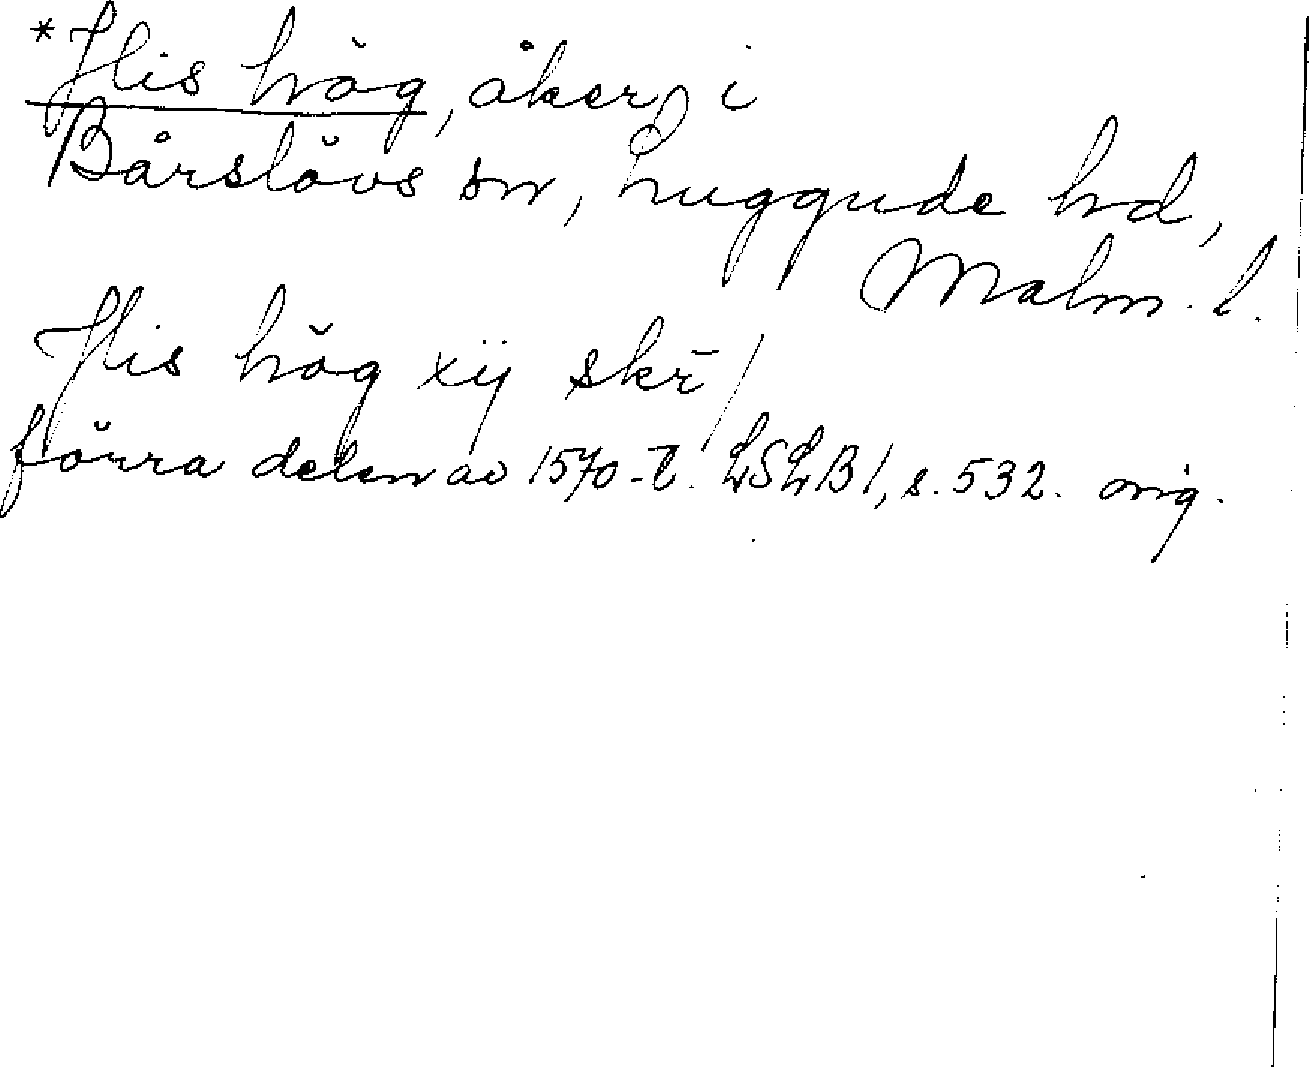 *His hög, åker, i
Bårslövs sn, Luggude hd,
Malm. l.
His hög xij skr̄/
förra delen av 1570-t. LSLB 1, s. 532. orig.